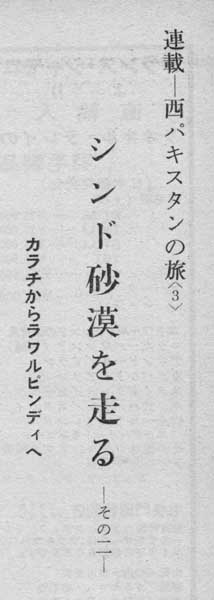 連載―西パキスタンの旅〈3〉
シンド砂漠を走る―その二―
カラチからラワルピンディへ